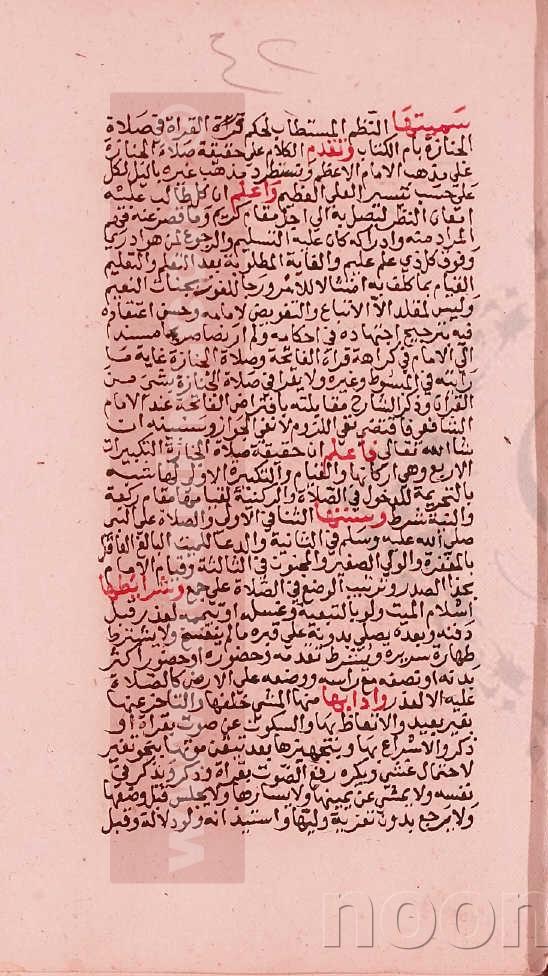 سميتها النظم المستطاب لحكم قراة القراة في صلاة
الجنازة بام الكتاب وتقدم الكلام على حقيقة صلاة الجنازة
على مذهب الامام الاعظم ونستطرد مذهب غيره بالنيل لكل
على حسب تيسير العلى العظيم واعلم ان كل طالب عليه
امعان النظر لتصل به الى اجل مقام كريم وما قصر عنه فهم
المراد منه وادراكه كان عليه التسليم والرجوع لمن هو ادرى
وفوق كل ذي علم عليم والغاية المطلوبة بعد العلم والتعليم
القيام بما كلف به امتثالا للامر ورجا للفوز بجنات النعيم
وليس لمقلد الا الاتباع والتفويض لامامه وحسن اعتقاده
فيه بترجيح اجتهاده في احكامه ولم ار نصا صريحا مسندا
الى الامام في كراهة قراة الفاتحة وصلاة الجنازة غاية ما
رايته في المبسوط وغيره ولا يقرا في صلاة الجنازة بشئ من
القران وذكر الشارح مقابلته بافتراض الفاتحة عند الامام
الشافعي فاقتضى نفي اللزوم لا نفي الجواز وسنبينه ان
شا الله تعالى فاعلم ان حقيقة صلاة الجنازة التكبيرات
الاربع وهي اركانها والقيام والتكبيرة الاولى لها شبه
بالتحريمة للدخول في الصلاة والركنية لقيامها مقام ركعة
والنية شرط وسننها الثنا في الاولى والصلاة على النبي
صلى الله عليه وسلم في الثانية والدعا للميت البالغ العاقل
بالمغفرة والولي الصغير والمجنون في الثالثة وقيام الامام
بحذا الصدر وترتيب الوضع في الصلاة على جمع وشرائطها
اسلام الميت ولو بالتبعية وغسله او تيممه لعذر قبل
دفنه وبعده يصلى بدونه على قبره مالم ينفسخ ولا يشترط
طهارة سريره ويشترط تقدمه وحضوره او حضور اكثر
بدنه او نصفه مع راسه ووضعه على الارض كالصلاة
عليه الا لعذر وادابها منها المشي خلفها والتاخر عنها
بغير بعيد والاتعاظ بها والسكوت عن صوت بقراة او
ذكر والاسراع بها وبتجهيزها بعد تيقن موتها بنحو تغير
لاحتمال غشي ويكره رفع الصوت بقراة وذكر ويذكر في
نفسه ولا يمشي عن يمينها ولا يسارها ولا يجلس قبل وضعها
ولا يرجع بدون تعزية وليها واستيذانه ولو دلالة وقبل
noon